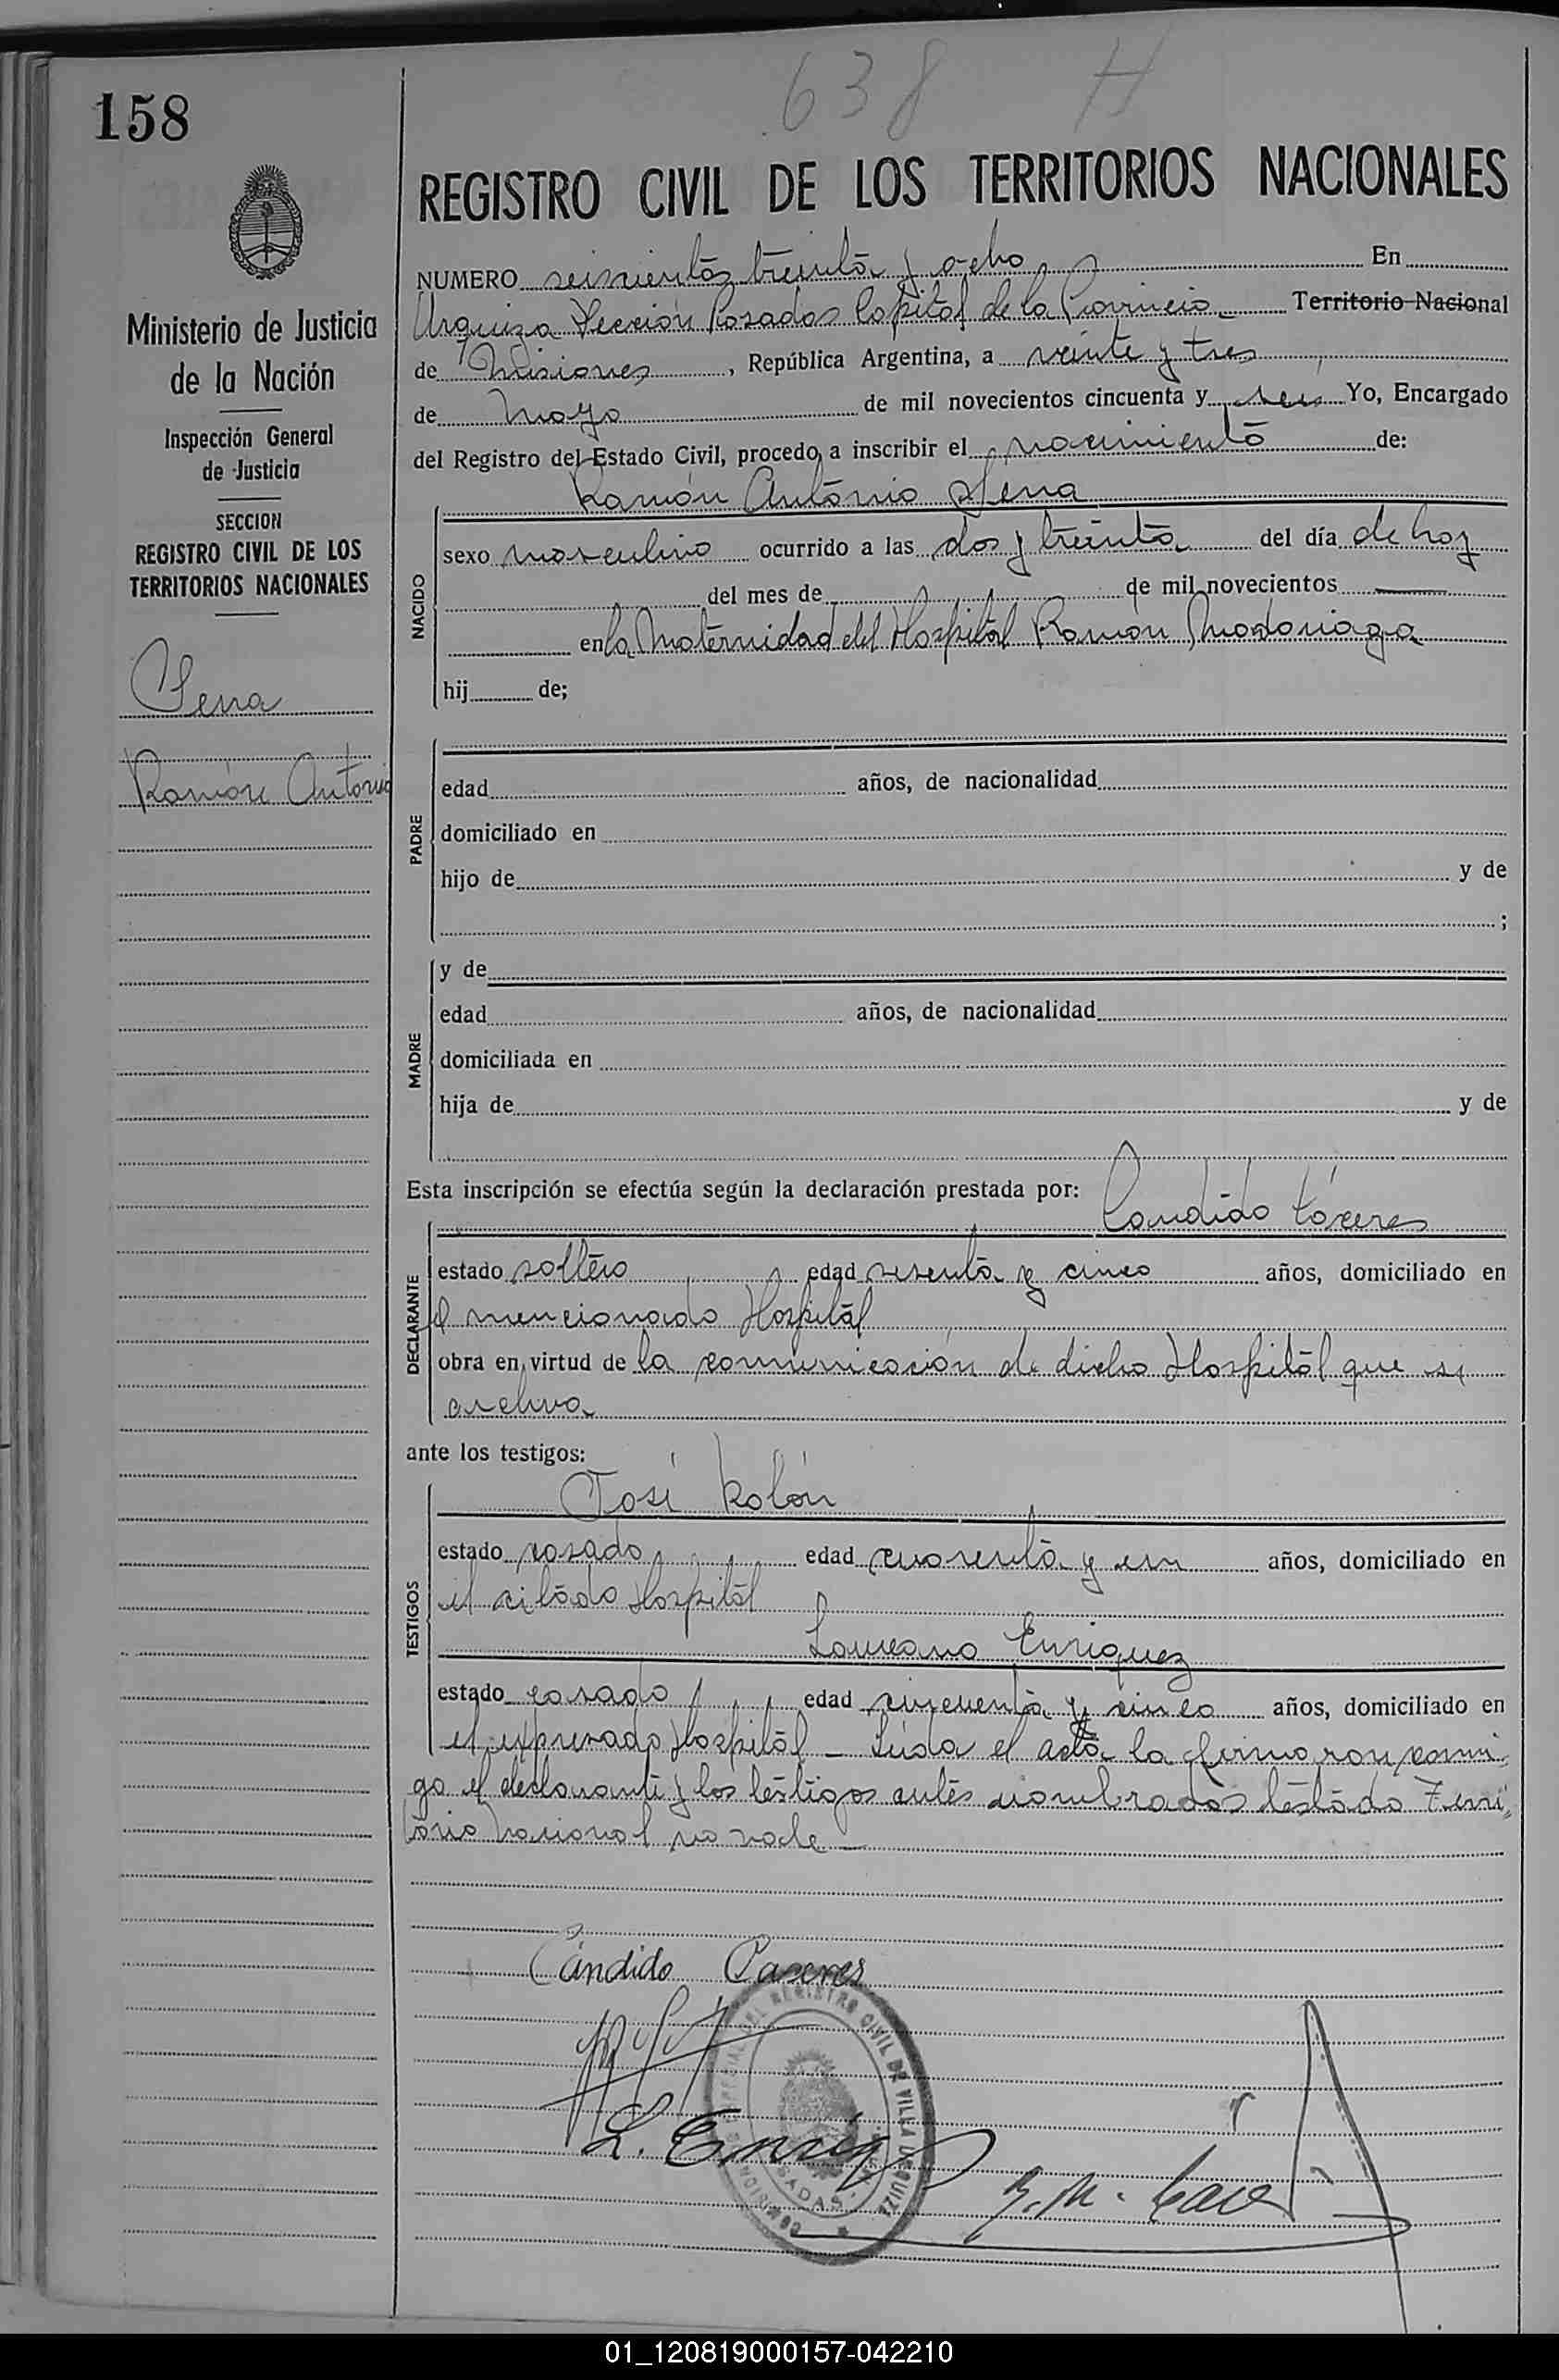 638 H
158
REGISTRO CIVIL DE LOS TERRITORIOS NACIONALES
NUMERO seiscientos treinta y ocho En
Urquiza Sección Posadas Capital de la Provincia Territorio Nacional
de Misiones, República Argentina, a veinte y tres
de Mayo de mil novecientos cincuenta y seis Yo, Encargado
del Registro del Estado Civil, procedo a inscribir el nacimiento de:
Ramón Antonio Sena
NACIDO
sexo masculino ocurrido a las dos y treinta del día de hoy
del mes de de mil novecientos
en la Maternidad del Hospital Ramón Madariaga
hij de;
PADRE
edad años, de nacionalidad
domiciliado en
hijo de y de
;
MADRE
y de
edad años, de nacionalidad
domiciliada en
hija de y de
Esta inscripción se efectúa según la declaración prestada por:
Candido Cáceres
DECLARANTE
estado soltero edad sesenta y cinco años, domiciliado en
el mencionado Hospital
obra en virtud de la comunicación de dicho Hospital que se
archiva
ante los testigos:
José Rolón
TESTIGOS
estado casado edad cuarenta y un años, domiciliado en
el citado Hospital
Laureano Enriquez
estado casado edad cincuenta y cinco años, domiciliado en
el expresado Hospital - Leida el acta la firmaron conmi
go el declarante y los testigos antes nombrados testado Terri
torio Nacional no vale
Cándido Caceres
L. Enriq
REGISTRO CIVIL DE VILLA URQUIZA
POSADAS
Ministerio de Justicia
de la Nación
Inspección General
de Justicia
SECCION
REGISTRO CIVIL DE LOS
TERRITORIOS NACIONALES
Sena
Ramón Antonio
01_120819000157-042210